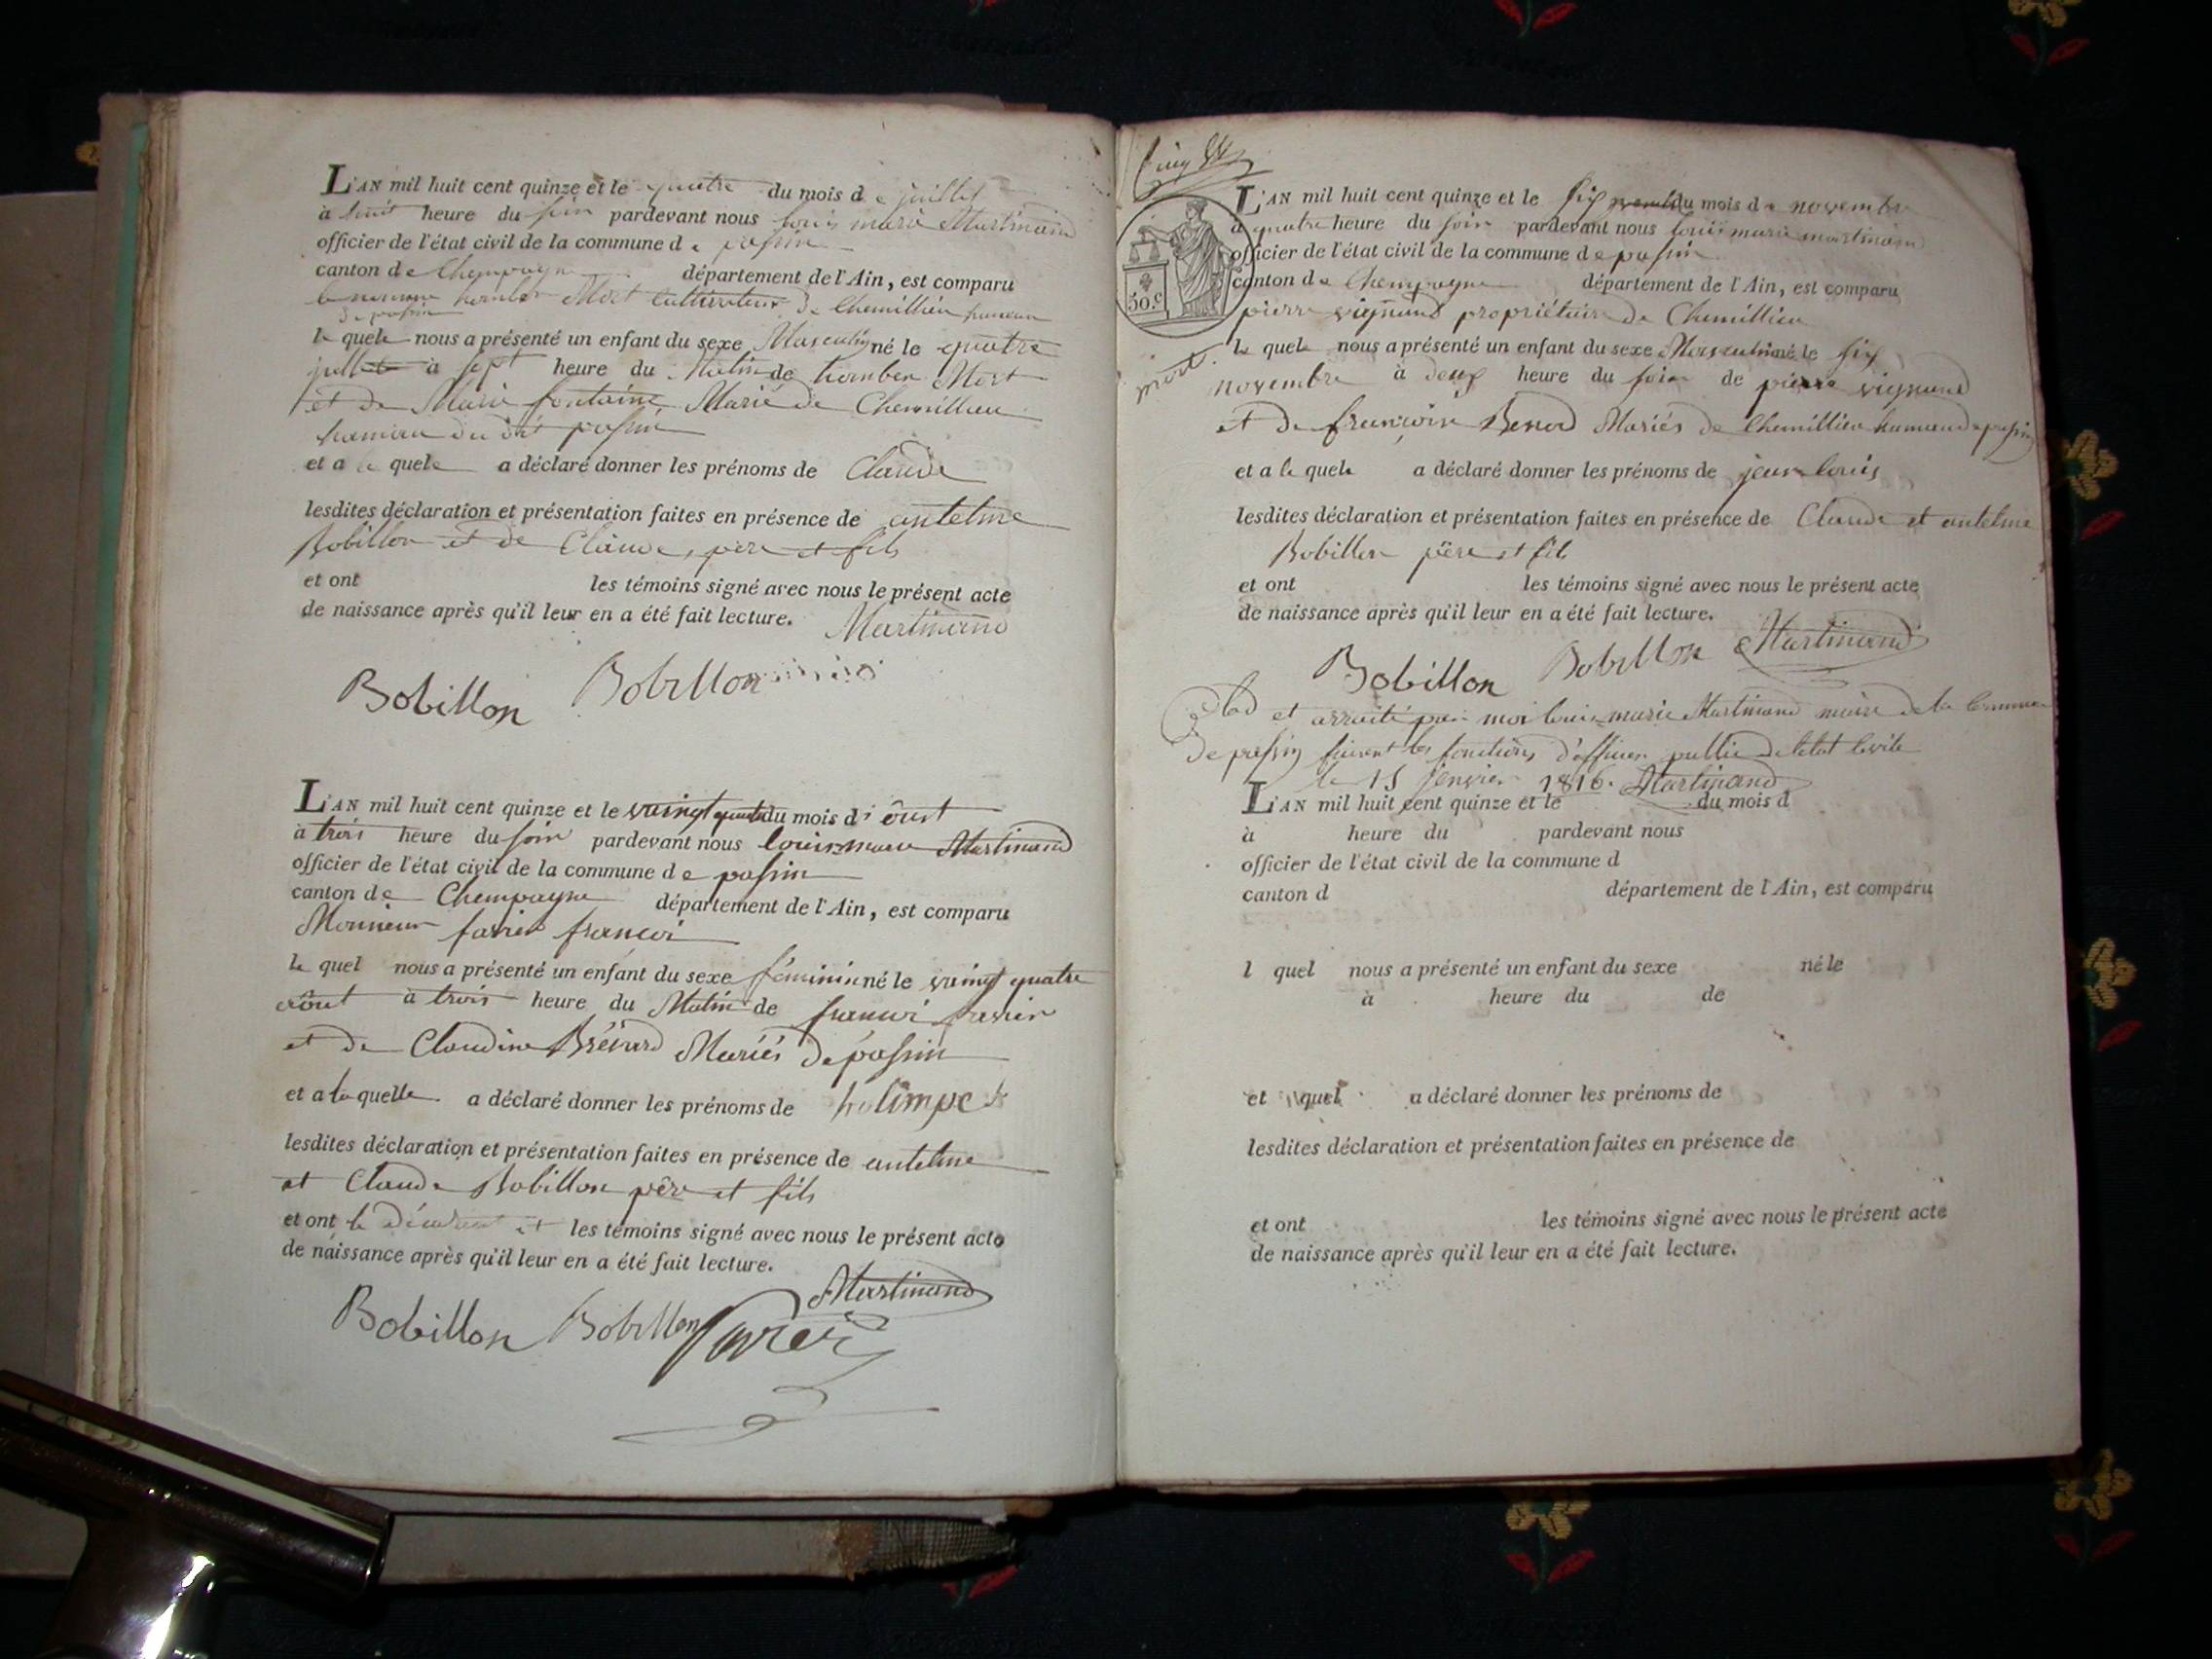 L'AN mil huit cent quinze et le quatre du mois de juillet
à huit heure du soir pardevant nous louis marie Martinand
officier de l'état civil de la commune de passin
canton de Champagne département de l'Ain, est comparu
le nommé humber Mort Cultivateur de Chemillieu hameau
de passin
le quele nous a présenté un enfant du sexe Masculin né le quatre
juillet à sept heure du Matin de humber Mort
et de Marie fontaine Marié de Chemillieu
hameau du dit passin
et a le quele a déclaré donner les prénoms de Claude
lesdites déclaration et présentation faites en présence de antelme
Bobillon et de Claude, père et fils
et ont les témoins signé avec nous le présent acte
de naissance après qu'il leur en a été fait lecture. Martinand
Bobillon Bobillon
L'AN mil huit cent quinze et le vaingt quatre du mois d'oust
à trois heure du soir pardevant nous louis marie Martinand
officier de l'état civil de la commune de passin
canton de Champagne département de l'Ain, est comparu
Monsieur favier françoi
le quel nous a présenté un enfant du sexe féminin né le vaingt quatre
août à trois heure du Matin de françoi favier
et de Claudine Brévard Mariés de passin
et a la quelle a déclaré donner les prénoms de holimpe
lesdites déclaration et présentation faites en présence de antelme
et Claude Bobillon père et fils
et ont le déclarant et les témoins signé avec nous le présent acte
de naissance après qu'il leur en a été fait lecture.
Martinand
Bobillon Bobillon favier
L'AN mil huit cent quinze et le six du mois de novembre
à quatre heure du soir pardevant nous louis marie martinand
officier de l'état civil de la commune de passin
canton de Champagne département de l'Ain, est comparu
50.c
pierre vignand propriétaire de Chemillieu
mort.
le quele nous a présenté un enfant du sexe Masculin né le six
novembre à deux heure du soir de pierre vignand
et de françoise Benod Mariés de Chemillieu hameau de passin
et a le quele a déclaré donner les prénoms de jean louis
lesdites déclaration et présentation faites en présence de Claude et antelme
Bobillon père et fils
et ont les témoins signé avec nous le présent acte
de naissance après qu'il leur en a été fait lecture.
Bobillon Bobillon Martinand
Clod et arraité par moi louis marie Martinand maire de la Commune
de passin faisant les fonctions d'officier public de l'état Civile
le 15 janvier 1816. Martinand
L'AN mil huit cent quinze et le du mois d
à heure du pardevant nous
officier de l'état civil de la commune d
canton d département de l'Ain, est comparu
l quel nous a présenté un enfant du sexe né le
à heure du de
et quel a déclaré donner les prénoms de
lesdites déclaration et présentation faites en présence de
et ont les témoins signé avec nous le présent acte
de naissance après qu'il leur en a été fait lecture.